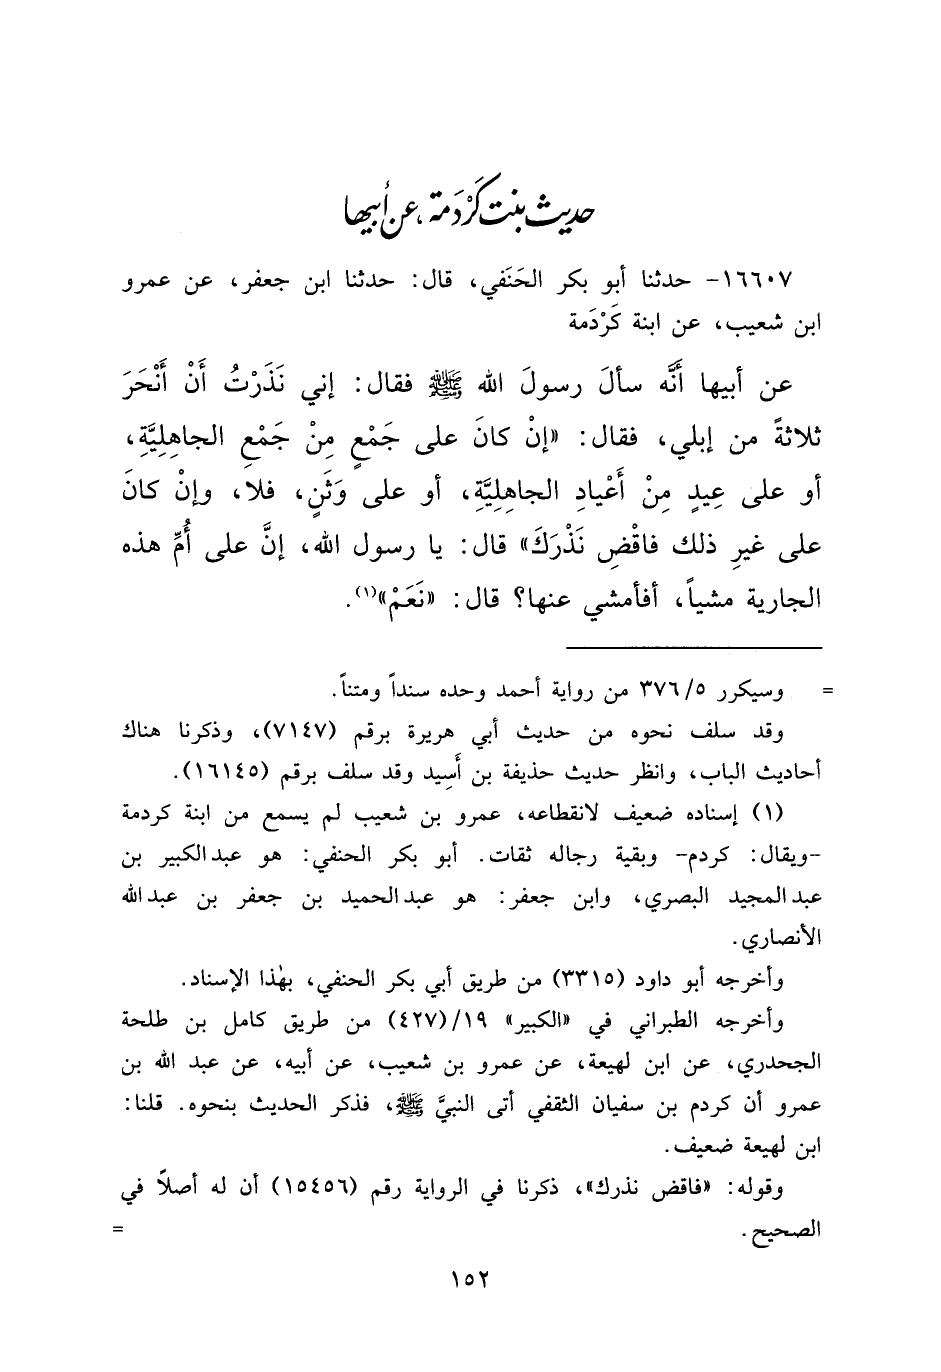 حديث بنت كَرْدَمة، عن أبيها
١٦٦٠٧- حدثنا أبو بكر الحَنَفي، قال: حدثنا ابن جعفر، عن عمرو
ابن شعيب، عن ابنة كَرْدَمة
عن أبيها أنَّه سألَ رسولَ الله ﷺ فقال: إني نَذَرْتُ أَنْ أَنْحَرَ
ثلاثةً من إبلي، فقال: «إنْ كانَ على جَمْعٍ مِنْ جَمْعِ الجاهِليَّةِ،
أو على عِيدٍ مِنْ أَعْيادِ الجاهِليَّةِ، أو على وَثَنٍ، فلا، وإنْ كانَ
على غيرِ ذلك فاقْضِ نَذْرَكَ» قال: يا رسول الله، إنَّ على أُمِّ هذه
الجارية مشياً، أفأمشي عنها؟ قال: «نَعَمْ»(١).
= وسيكرر ٣٧٦/٥ من رواية أحمد وحده سنداً ومتناً.
وقد سلف نحوه من حديث أبي هريرة برقم (٧١٤٧)، وذكرنا هناك
أحاديث الباب، وانظر حديث حذيفة بن أَسِيد وقد سلف برقم (١٦١٤٥).
(١) إسناده ضعيف لانقطاعه، عمرو بن شعيب لم يسمع من ابنة كردمة
-ويقال: كردم- وبقية رجاله ثقات. أبو بكر الحنفي: هو عبد الكبير بن
عبد المجيد البصري، وابن جعفر: هو عبد الحميد بن جعفر بن عبد الله
الأنصاري.
وأخرجه أبو داود (٣٣١٥) من طريق أبي بكر الحنفي، بهٰذا الإسناد.
وأخرجه الطبراني في «الكبير» ١٩/(٤٢٧) من طريق كامل بن طلحة
الجحدري، عن ابن لهيعة، عن عمرو بن شعيب، عن أبيه، عن عبد الله بن
عمرو أن كردم بن سفيان الثقفي أتى النبيَّ ﷺ، فذكر الحديث بنحوه. قلنا:
ابن لهيعة ضعيف.
وقوله: «فاقض نذرك»، ذكرنا في الرواية رقم (١٥٤٥٦) أن له أصلاً في
الصحيح. =
١٥٢